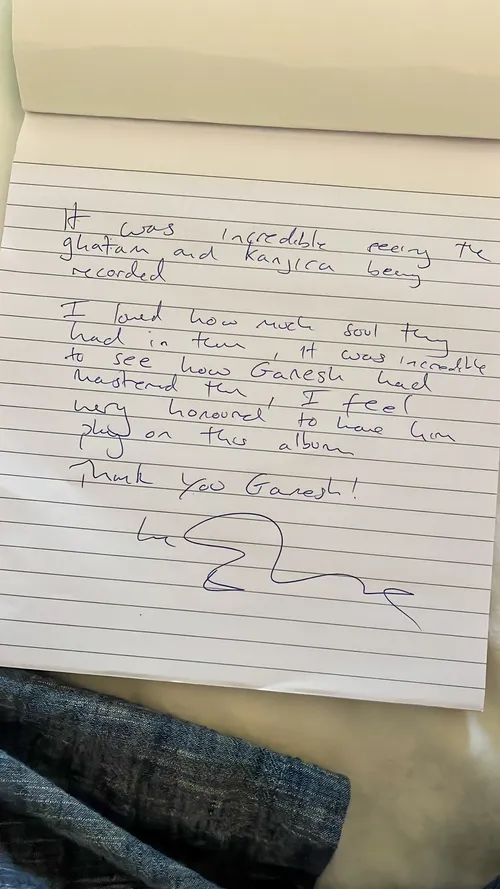 It was incredible seeing the
ghatam and Kanjira being
recorded
I loved how much soul they
had in them, it was incredible
to see how Ganesh had
mastered them, I feel
very honoured to have him
play on this album
Thank you Ganesh!